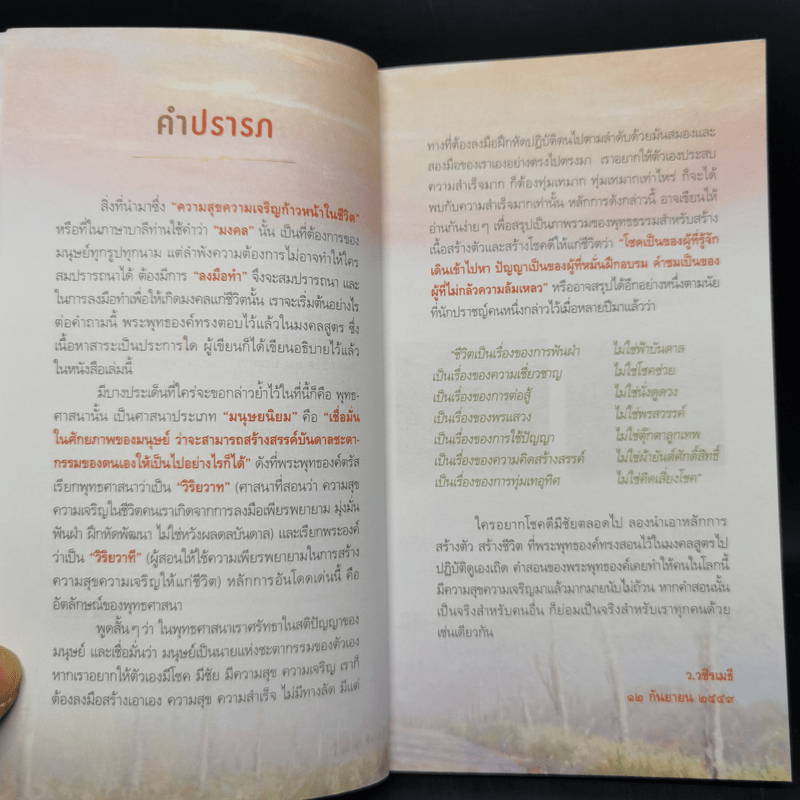 คำปรารภ
สิ่งที่นำมาซึ่ง “ความสุขความเจริญก้าวหน้าในชีวิต”
หรือที่ในภาษาบาลีท่านใช้คำว่า “มงคล” นั้น เป็นที่ต้องการของ
มนุษย์ทุกรูปทุกนาม แต่ลำพังความต้องการไม่อาจทำให้ใคร
สมปรารถนาได้ ต้องมีการ “ลงมือทำ” จึงจะสมปรารถนา และ
ในการลงมือทำเพื่อให้เกิดมงคลแก่ชีวิตนั้น เราจะเริ่มต้นอย่างไร
ต่อคำถามนี้ พระพุทธองค์ทรงตอบไว้แล้วในมงคลสูตร ซึ่ง
เนื้อหาสาระเป็นประการใด ผู้เขียนก็ได้เขียนอธิบายไว้แล้ว
ในหนังสือเล่มนี้
มีบางประเด็นที่ใคร่จะขอกล่าวย้ำไว้ในที่นี้ก็คือ พุทธ-
ศาสนานั้น เป็นศาสนาประเภท “มนุษยนิยม” คือ “เชื่อมั่น
ในศักยภาพของมนุษย์ ว่าจะสามารถสร้างสรรค์บันดาลชะตา-
กรรมของตนเองให้เป็นไปอย่างไรก็ได้” ดังที่พระพุทธองค์ตรัส
เรียกพุทธศาสนาว่าเป็น “วิริยวาท” (ศาสนาที่สอนว่า ความสุข
ความเจริญในชีวิตคนเราเกิดจากการลงมือเพียรพยายาม มุ่งมั่น
ฟันฝ่า ฝึกหัดพัฒนา ไม่ใช่หวังผลดลบันดาล) และเรียกพระองค์
ว่าเป็น “วิริยวาที” (ผู้สอนให้ใช้ความเพียรพยายามในการสร้าง
ความสุขความเจริญให้แก่ชีวิต) หลักการอันโดดเด่นนี้ คือ
อัตลักษณ์ของพุทธศาสนา
พูดสั้นๆว่า ในพุทธศาสนาเราศรัทธาในสติปัญญาของ
มนุษย์ และเชื่อมั่นว่า มนุษย์เป็นนายแห่งชะตากรรมของตัวเอง
หากเราอยากให้ตัวเองมีโชค มีชัย มีความสุข ความเจริญ เราก็
ต้องลงมือสร้างเอาเอง ความสุข ความสำเร็จ ไม่มีทางลัด มีแต่
ทางที่ต้องลงมือฝึกหัดปฏิบัติตนไปตามลำดับด้วยมันสมองและ
สองมือของเราเองอย่างตรงไปตรงมา เราอยากให้ตัวเองประสบ
ความสำเร็จมาก ก็ต้องทุ่มเทมาก ทุ่มเทมากเท่าไหร่ ก็จะได้
พบกับความสำเร็จมากเท่านั้น หลักการดังกล่าวนี้ อาจเขียนให้
อ่านกันง่ายๆ เพื่อสรุปเป็นภาพรวมของพุทธธรรมสำหรับสร้าง
เนื้อสร้างตัวและสร้างโชคดีให้แก่ชีวิตว่า “โชคเป็นของผู้ที่รู้จัก
เดินเข้าไปหา ปัญญาเป็นของผู้ที่หมั่นฝึกอบรม คำชมเป็นของ
ผู้ที่ไม่กลัวความล้มเหลว” หรืออาจสรุปได้อีกอย่างหนึ่งตามนัย
ที่นักปราชญ์คนหนึ่งกล่าวไว้เมื่อหลายปีมาแล้วว่า
“ชีวิตเป็นเรื่องของการฟันฝ่า ไม่ใช่ฟ้าบันดาล
เป็นเรื่องของความเชี่ยวชาญ ไม่ใช่โชคช่วย
เป็นเรื่องของการต่อสู้ ไม่ใช่นั่งดูดวง
เป็นเรื่องของพรแสวง ไม่ใช่พรสวรรค์
เป็นเรื่องของการใช้ปัญญา ไม่ใช่ตุ๊กตาลูกเทพ
เป็นเรื่องของความคิดสร้างสรรค์ ไม่ใช่ผ้ายันต์ศักดิ์สิทธิ์
เป็นเรื่องของการทุ่มเทอุทิศ ไม่ใช่คิดเสี่ยงโชค”
ใครอยากโชคดีมีชัยตลอดไป ลองนำเอาหลักการ
สร้างตัว สร้างชีวิต ที่พระพุทธองค์ทรงสอนไว้ในมงคลสูตรไป
ปฏิบัติดูเองเถิด คำสอนของพระพุทธองค์เคยทำให้คนในโลกนี้
มีความสุขความเจริญมาแล้วมากมายนับไม่ถ้วน หากคำสอนนั้น
เป็นจริงสำหรับคนอื่น ก็ย่อมเป็นจริงสำหรับเราทุกคนด้วย
เช่นเดียวกัน
ว.วชิรเมธี
๑๒ กันยายน ๒๕๔๙